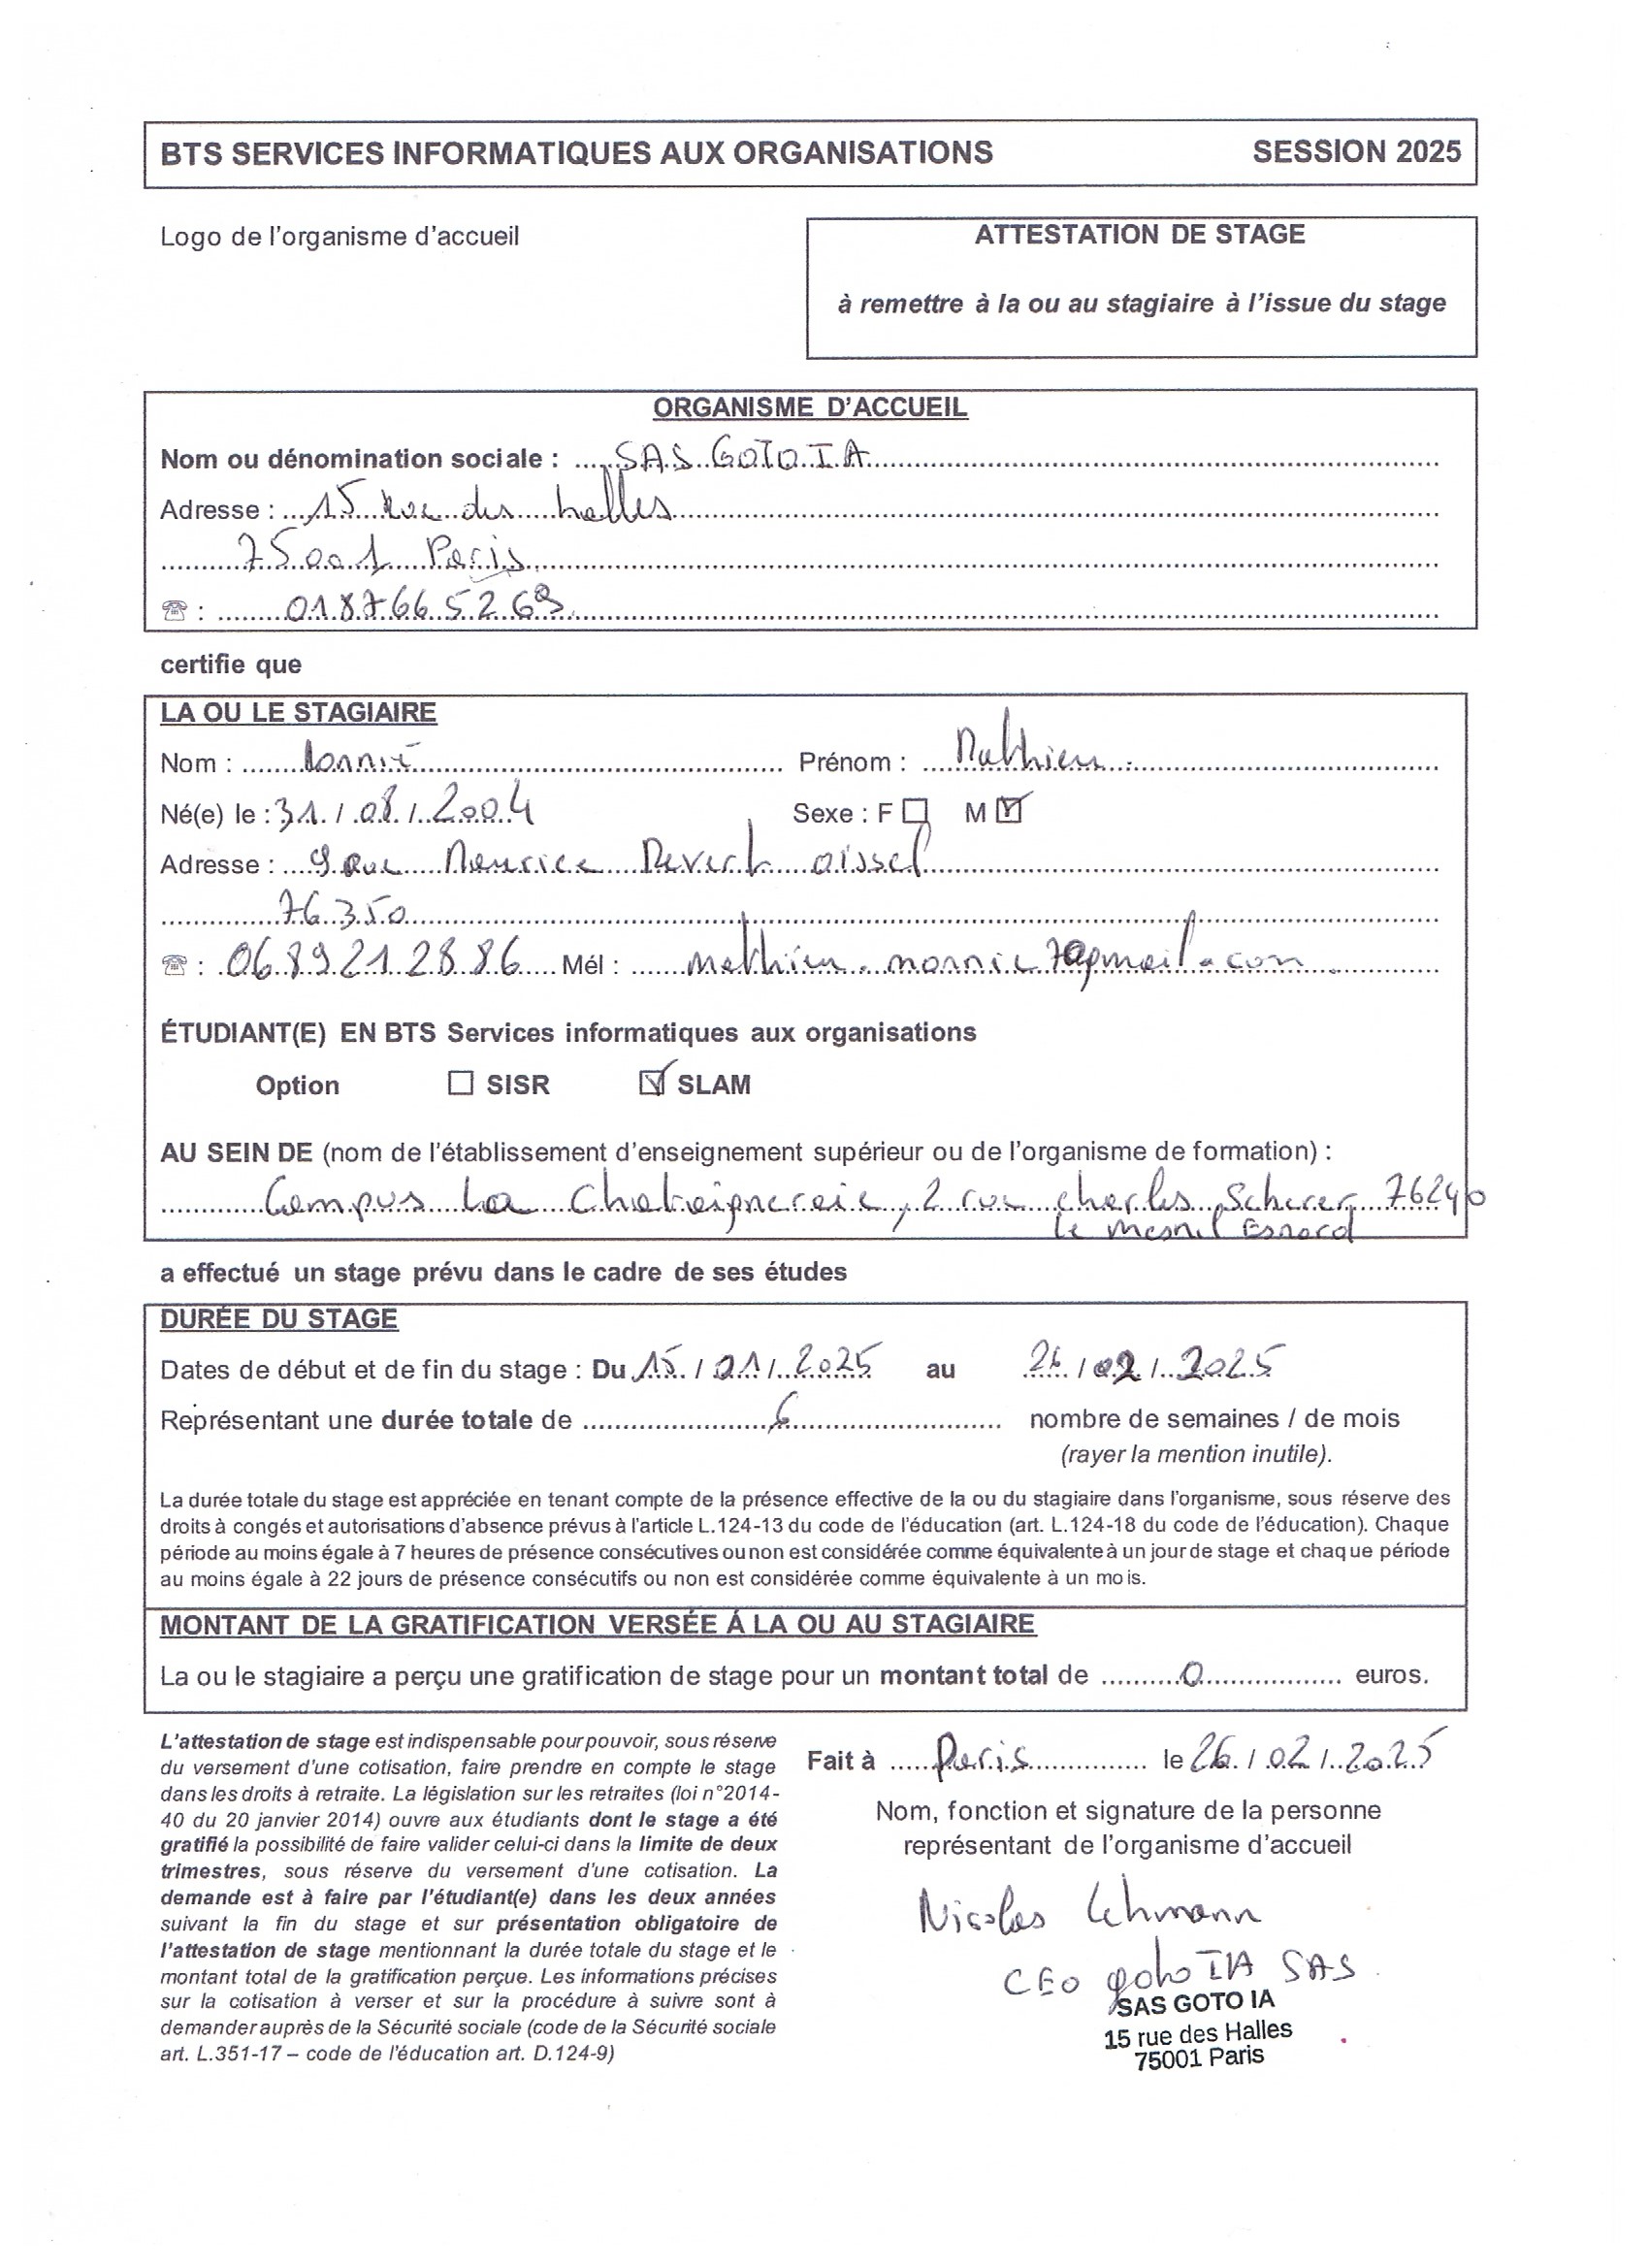 BTS SERVICES INFORMATIQUES AUX ORGANISATIONS SESSION 2025
Logo de l'organisme d'accueil
ATTESTATION DE STAGE
à remettre à la ou au stagiaire à l'issue du stage
ORGANISME D'ACCUEIL
Nom ou dénomination sociale : SAS GOTO IA
Adresse : 15 Rue des halles
75001 Paris
☎ : 01 87 66 52 69
certifie que
LA OU LE STAGIAIRE
Nom : Prénom : Mathieu
Né(e) le : 31 / 08 / 2004 Sexe : F ☐ M ☑
Adresse : 9 Rue Maurice oissel
76350
☎ : 06 89 21 28 86 Mél :
ÉTUDIANT(E) EN BTS Services informatiques aux organisations
Option ☐ SISR ☑ SLAM
AU SEIN DE (nom de l'établissement d'enseignement supérieur ou de l'organisme de formation) :
Campus La Chataigneraie, 2 rue charles Scherer 76240
le mesnil Esnard
a effectué un stage prévu dans le cadre de ses études
DURÉE DU STAGE
Dates de début et de fin du stage : Du 15 / 01 / 2025 au 26 / 02 / 2025
Représentant une durée totale de 6 nombre de semaines / de mois
(rayer la mention inutile).
La durée totale du stage est appréciée en tenant compte de la présence effective de la ou du stagiaire dans l'organisme, sous réserve des
droits à congés et autorisations d'absence prévus à l'article L.124-13 du code de l'éducation (art. L.124-18 du code de l'éducation). Chaque
période au moins égale à 7 heures de présence consécutives ou non est considérée comme équivalente à un jour de stage et chaque période
au moins égale à 22 jours de présence consécutifs ou non est considérée comme équivalente à un mois.
MONTANT DE LA GRATIFICATION VERSÉE Á LA OU AU STAGIAIRE
La ou le stagiaire a perçu une gratification de stage pour un montant total de 0 euros.
L'attestation de stage est indispensable pour pouvoir, sous réserve
du versement d'une cotisation, faire prendre en compte le stage
dans les droits à retraite. La législation sur les retraites (loi n°2014-
40 du 20 janvier 2014) ouvre aux étudiants dont le stage a été
gratifié la possibilité de faire valider celui-ci dans la limite de deux
trimestres, sous réserve du versement d'une cotisation. La
demande est à faire par l'étudiant(e) dans les deux années
suivant la fin du stage et sur présentation obligatoire de
l'attestation de stage mentionnant la durée totale du stage et le
montant total de la gratification perçue. Les informations précises
sur la cotisation à verser et sur la procédure à suivre sont à
demander auprès de la Sécurité sociale (code de la Sécurité sociale
art. L.351-17 – code de l'éducation art. D.124-9)
Fait à Paris le 26 / 02 / 2025
Nom, fonction et signature de la personne
représentant de l'organisme d'accueil
Nicolas Lehmann
CEO goto IA SAS
SAS GOTO IA
15 rue des Halles
75001 Paris